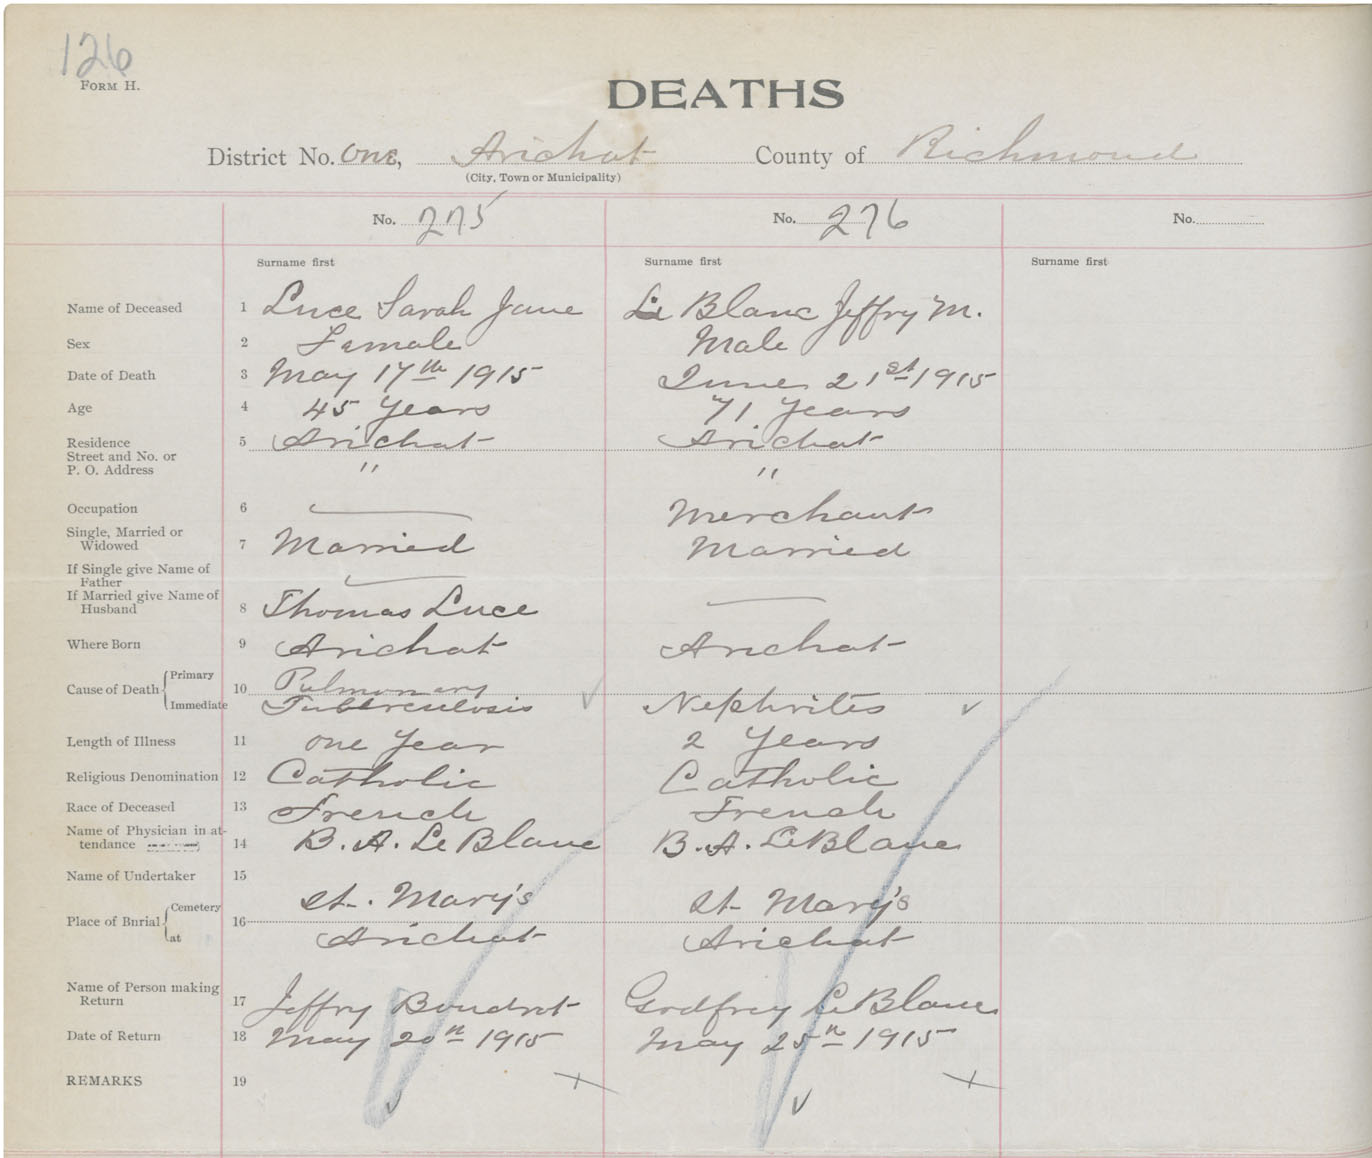 126
FORM H.
DEATHS
District No. One, Arichat County of Richmond
(City, Town or Municipality)
No. 275 No. 276 No.
Surname first Surname first Surname first
Name of Deceased 1 Luce Sarah Jane Le Blanc Jeffry M.
Sex 2 Female Male
Date of Death 3 May 17th 1915 June 21st 1915
Age 4 45 Years 71 Years
Residence 5 Arichat Arichat
Street and No. or
P. O. Address " "
Occupation 6 Merchant
Single, Married or
Widowed 7 Married Married
If Single give Name of
Father
If Married give Name of
Husband 8 Thomas Luce
Where Born 9 Arichat Arichat
Cause of Death Primary 10 Pulmonary
Immediate Tuberculosis Nephrites
Length of Illness 11 one Year 2 Years
Religious Denomination 12 Catholic Catholic
Race of Deceased 13 French French
Name of Physician in at-
tendance 14 B. A. Le Blanc B. A. LeBlanc
Name of Undertaker 15
Place of Burial Cemetery 16 St. Mary's St. Mary's
at Arichat Arichat
Name of Person making
Return 17 Jeffry Boudrot Godfrey Le Blanc
Date of Return 18 May 20th 1915 May 25th 1915
REMARKS 19